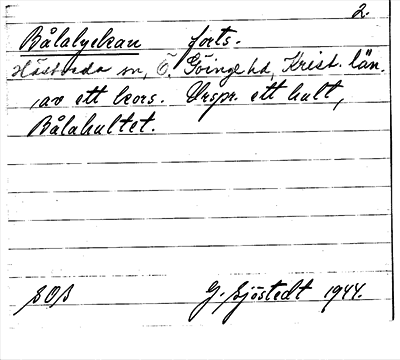 2.
Bålalyckan forts.
Hästveda sn, Ö. Göinge hd, Krist. län.
, av ett kors. Urspr. ett hult,
Bålahultet.
SOB G. Sjöstedt 1944.